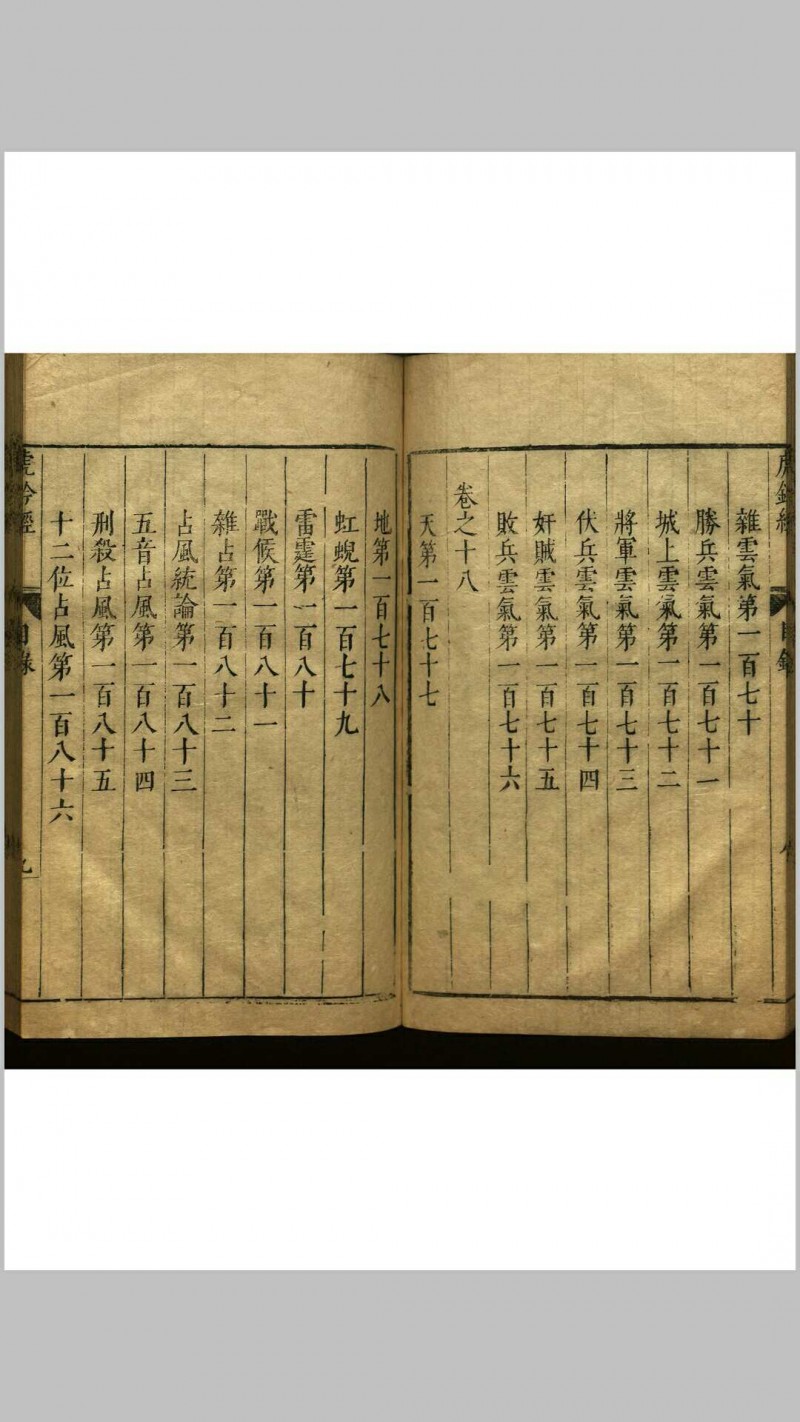 雜雲氣第一百七十
勝兵雲氣第一百七十一
城上雲氣第一百七十二
將軍雲氣第一百七十三
伏兵雲氣第一百七十四
奸賊雲氣第一百七十五
敗兵雲氣第一百七十六
卷之十八
天第一百七十七
地第一百七十八
虹蜺第一百七十九
雷霆第一百八十
戰候第一百八十一
雜占第一百八十二
占風統論第一百八十三
五音占風第一百八十四
刑殺占風第一百八十五
十二位占風第一百八十六
虎鈐經
目錄
九